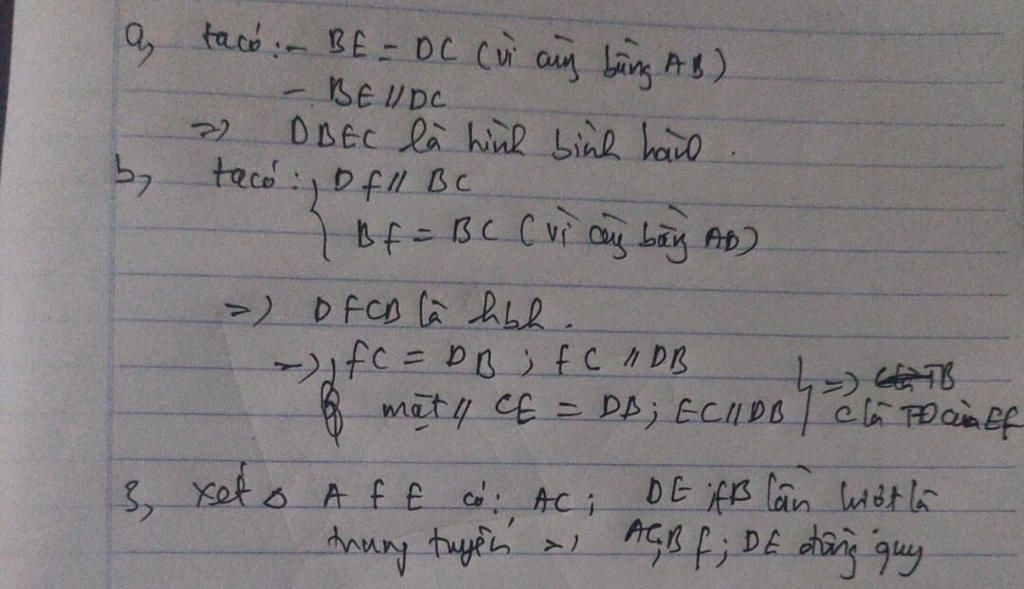 a, ta có: - BE = DC (vì cùng bằng AB)
- BE // DC
=> DBEC là hình bình hành.
b, ta có: Df // BC
Bf = BC (vì cùng bằng AD)
=> DfCB là hbh.
=> fC = DB ; fC // DB
mặt // CE = DB; EC // DB => C là TĐ của Ef
3, xét △ AfE có: AC; DE; fB lần lượt là
trung tuyến => AC; Bf; DE đồng quy